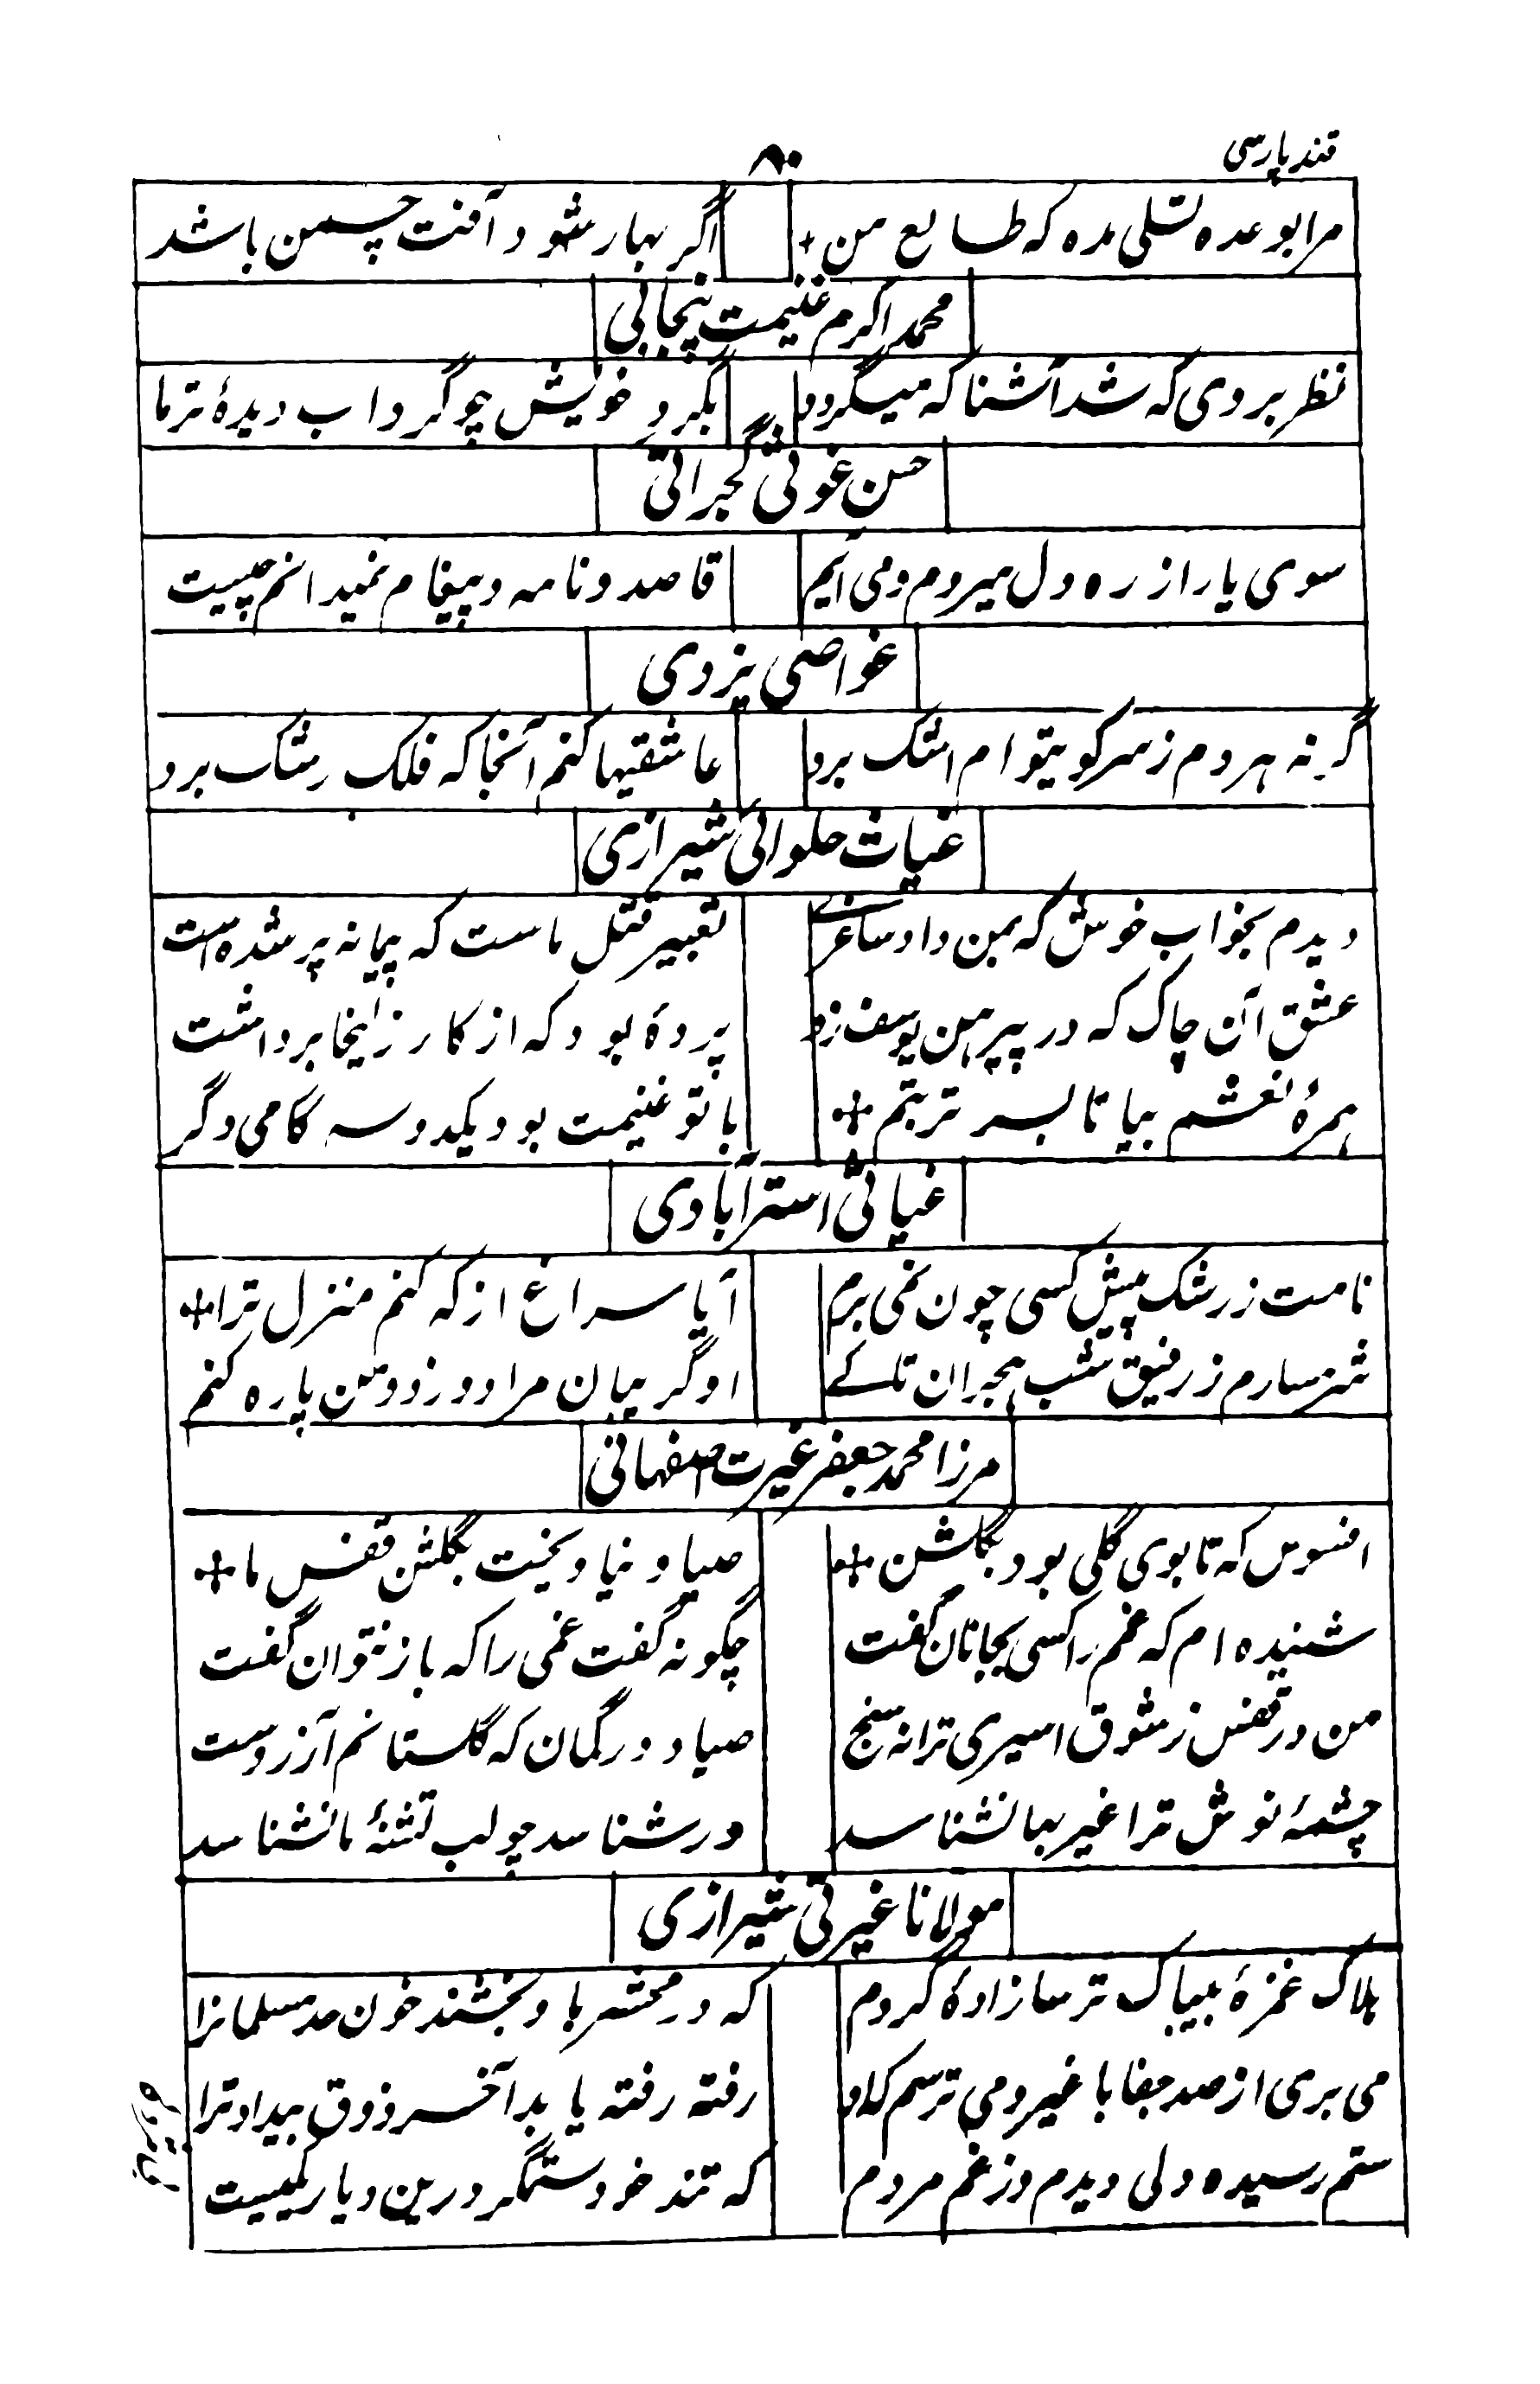 قند پارسی
۸۰
مرا بوعده تسلی مده که طالع من + اگر بهار شود آفت چمن باشد
محمد اکرم غنیمت پنجابی
نظر بروی که شد آشنا که میگردد بگرد خویش چو گرداب دیدهٔ تر ما
حسن غوثی گجراتی
سوی یار از ره دل میروم و می آیم قاصد و نامه و پیغام نمیدانم چیست
غواصی یزدی
گرنه هردم ز سر کویتوام اشک برد عاشقیها کنم آنجا که فلک رشک برد
غیاث حلوائی شیرازی
دیدم بخواب خوش که بمن داد ساغرے تعبیر قتل ماست که پیمانه پر شده است
عشق آن چاک که در پیرهن یوسف زد پردهٔ بود که از کار زلیخا برداشت
همرهٔ نعشم بیا تا بسر تربتم + با تو غنیمت بود یکدوسه گامی دگر
غیاثی استرآبادی
نامت ز رشک پیش کسی چون نمی برم آیا سراغ از که کنم منزل ترا +
شرمسارم ز رفیق شب هجران تا کے او گریبان مرا دوزد و من پاره کنم
مرزا محمد جعفر غیرت اصفهانی
افسوس که تا بوی گلی بود بگلشن + صیاد نیاویخت بگلشن قفس ما +
شنیده ام که غم را کسی بجانان گفت چگونه گفت غمی را که باز نتوان گفت
من در قفس ز شوق اسیری ترانه سنج صیاد در گمان که گلستانم آرزوست
چشمهٔ نوش ترا غیر بما نشناسد ور شناسد چو لب تشنهٔ ما نشناسد
مولانا غیرتی شیرازی
هلاک غمزهٔ بیباک ترسا زادهٔ گردم که در محشر باو بخشند خون صد مسلمانرا
می بری از صد جفا با غیر و می ترسم که او رفته رفته یابد آخر ذوق بیداد ترا
ستم رسیده دلی دیدم و ز غم مردم که تند خو ستمگر درین دیار یکیست